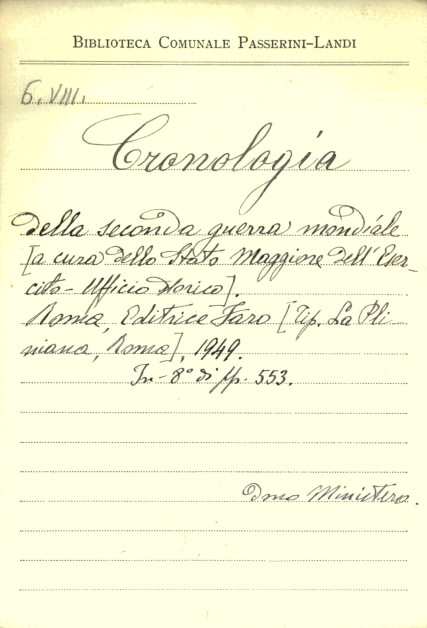 BIBLIOTECA COMUNALE PASSERINI-LANDI
6. VIII.
Cronologia
della seconda guerra mondiale
[a cura dello Stato Maggiore dell'Eser-
cito - Ufficio storico].
Roma, Editrice Faro [Tip. La Pli-
niana, Roma], 1949.
In-8° di pp. 553.
Dono Ministero.